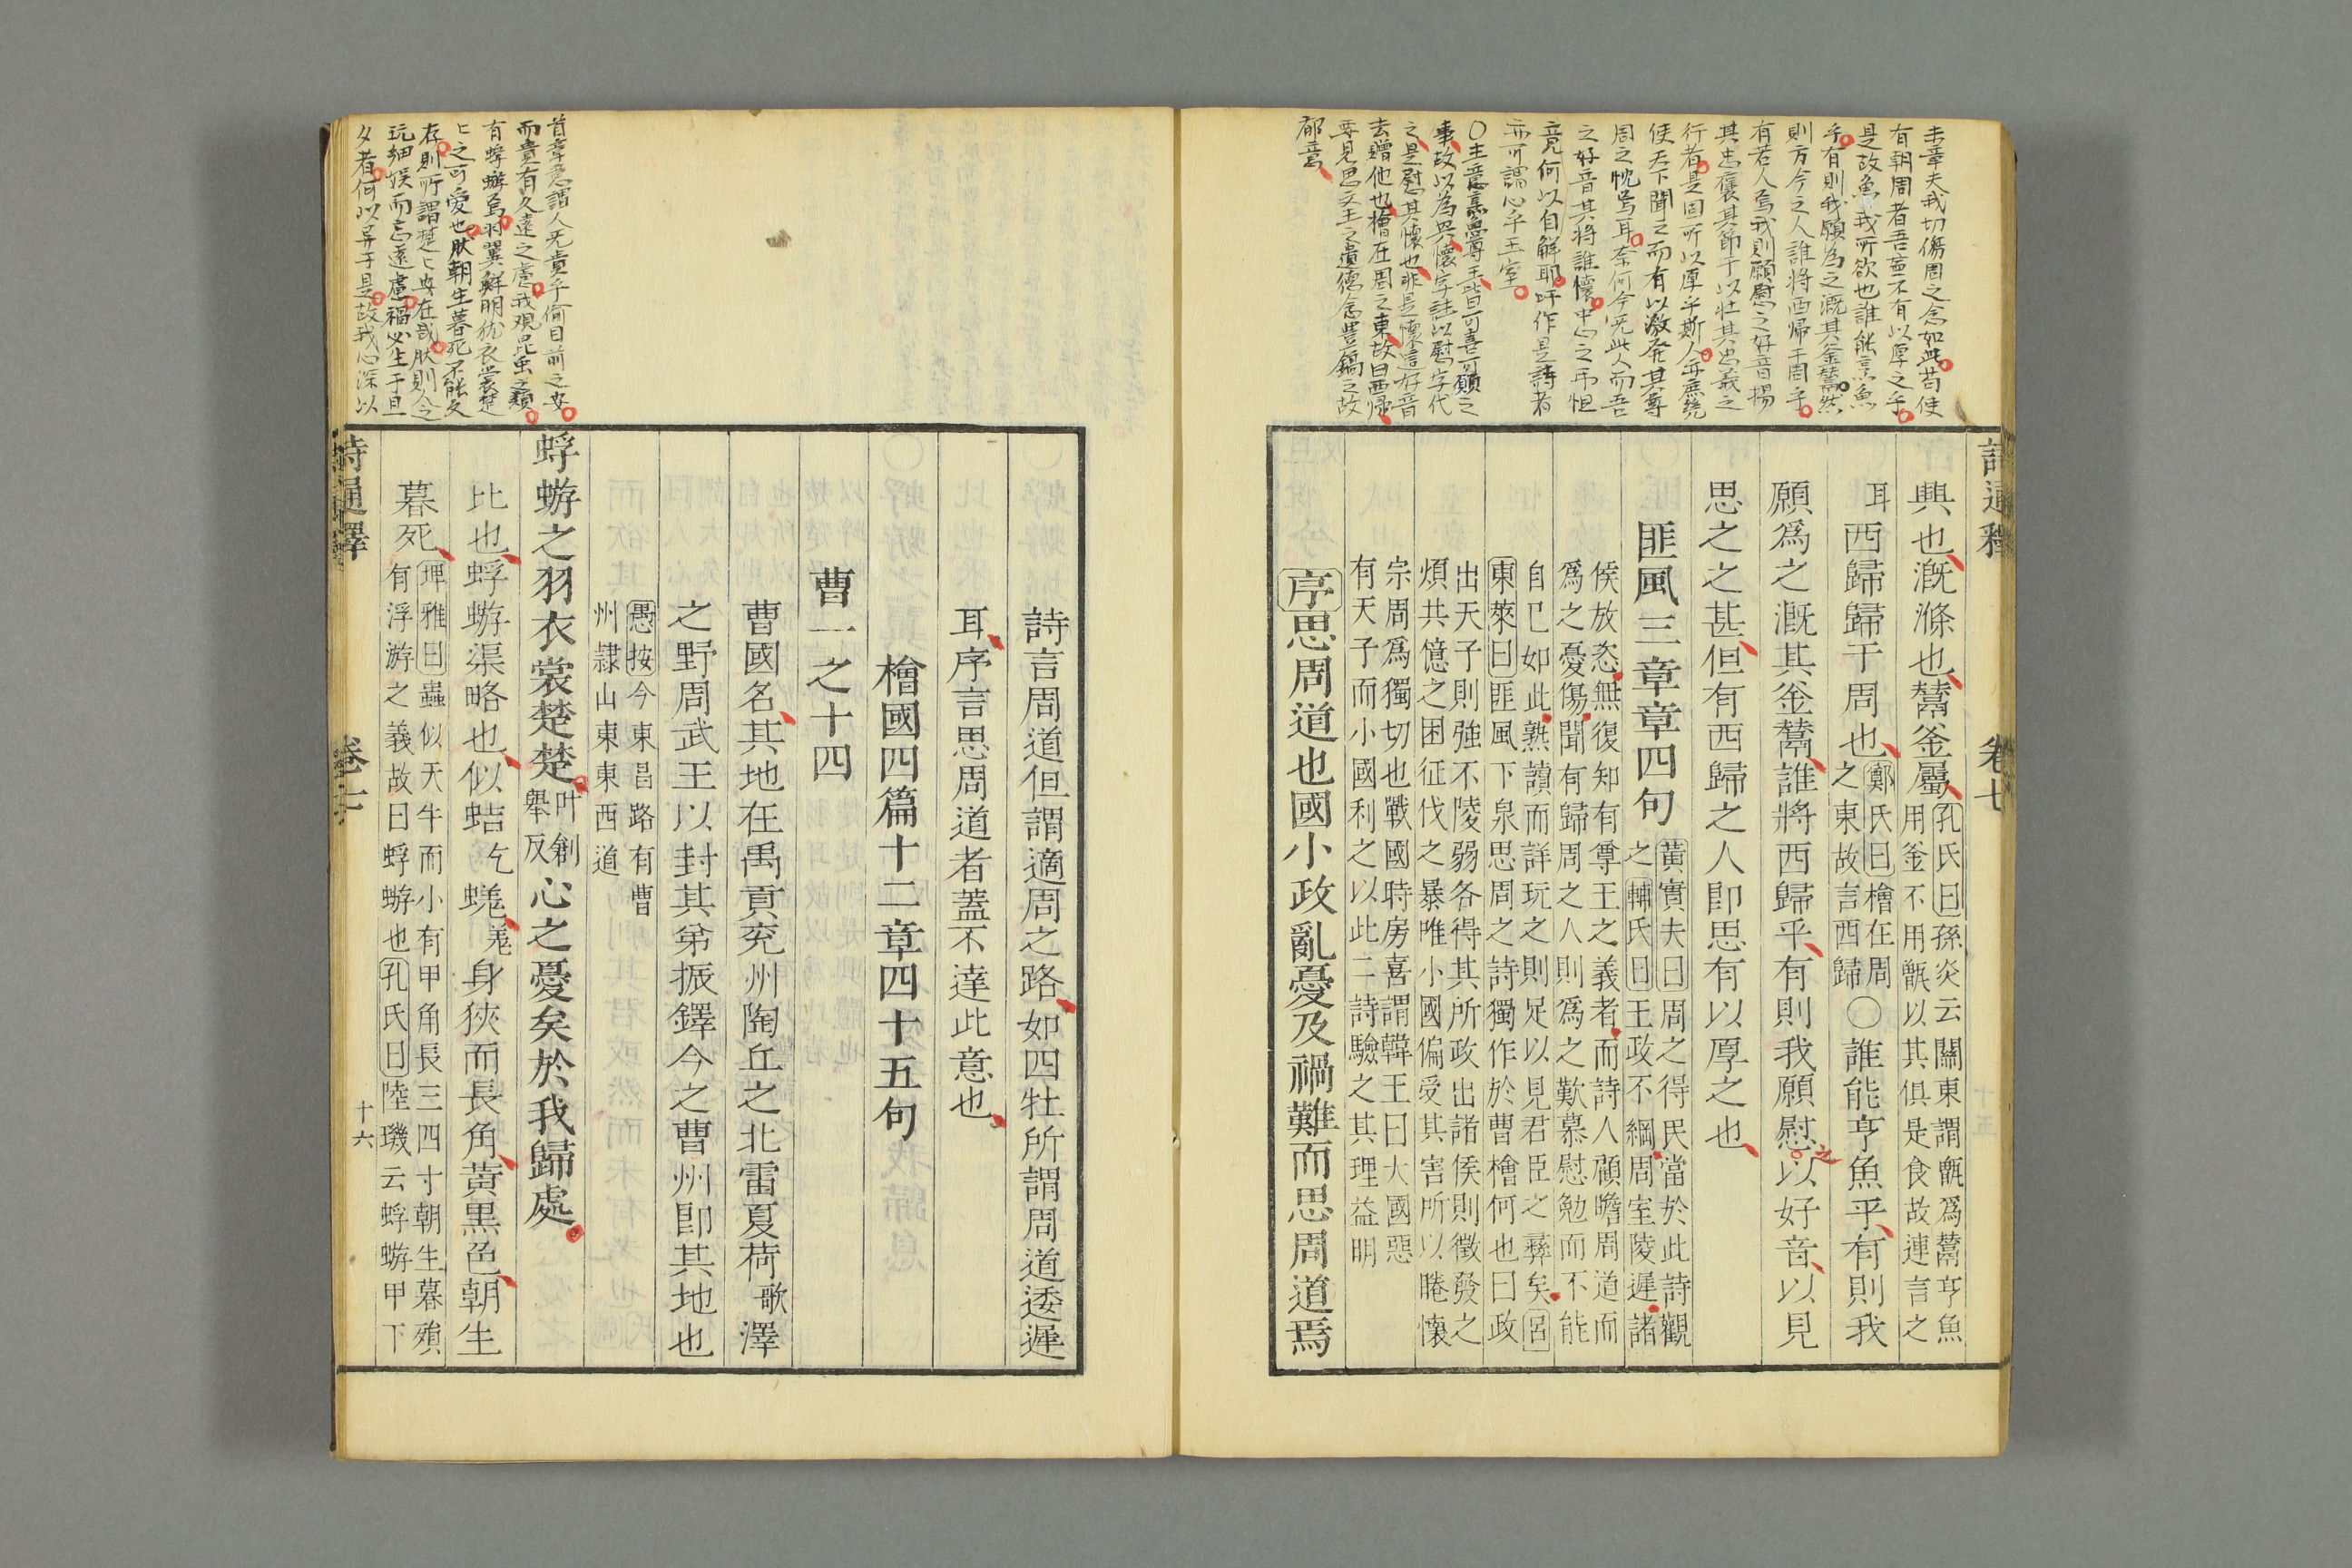 未章夫我切傷周之念如此苟使
有朝周者吾蓋不有以厚之乎
是故魚我所欲也誰能烹魚
乎有則我願為之溉其釜鬵然
則方今之人誰將西歸于周乎
有若人焉我則願慰之好音揚
其忠褒其節于以壯其忠義之
行者是固所以厚乎斯人并庶幾
使天下聞之而有以激發其尊
周之忱焉耳奈何今旡此人而吾
之好音其將誰懷中心之弔怛
竟何以自解耶吁作是詩者
亦可謂心乎王室
事故以為興懷字註以慰字代
之是慰其懷也非是懷這好音
去贈他也檜在周之東故曰西歸
要見思文王之遺德念豊鎬之故
都意
詩通釋
卷七
興也溉滌也鬵釜屬孔氏曰孫炎云關東謂甑爲鬵亨魚
用釜不用甑以其俱是食故連言之
耳西歸歸于周也鄭氏曰檜在周
之東故言西歸〇誰能亨魚乎有則我
願爲之溉其釜鬵誰將西歸乎有則我願慰之以好音以見
思之之甚但有西歸之人卽思有以厚之也
匪風三章章四句黃實夫曰周之得民當於此詩觀
之輔氏曰王政不綱周室陵遲諸
侯放恣無復知有尊王之義者而詩人顧瞻周道而
爲之憂傷聞有歸周之人則爲之歎慕慰勉而不能
自已如此熟讀而詳玩之則足以見君臣之彝矣呂
東萊曰匪風下泉思周之詩獨作於曹檜何也曰政
出天子則強不陵弱各得其所政出諸侯則徵發之
煩共億之困征伐之暴唯小國偏受其害所以睠懷
宗周爲獨切也戰國時房喜謂韓王曰大國惡
有天子而小國利之以此二詩驗之其理益明
序思周道也國小政亂憂及禍難而思周道焉
詩言周道但謂適周之路如四牡所謂周道逶遲
耳序言思周道者蓋不達此意也
檜國四篇十二章四十五句
曹一之十四
曹國名其地在禹貢兖州陶丘之北雷夏荷歌澤
之野周武王以封其弟振鐸今之曹州卽其地也
愚按今東昌路有曹
州隸山東東西道
蜉蝣之羽衣裳楚楚叶創
舉反心之憂矣於我歸處
比也蜉蝣渠略也似蛣乞蜣羌身狹而長角黃黑色朝生
暮死埤雅曰蟲似天牛而小有甲角長三四寸朝生暮殞
有浮游之義故曰蜉蝣也孔氏曰陸璣云蜉蝣甲下
詩通釋
卷七
十六
首章意謂人旡貴乎偷目前之安
而貴有久遠之慮我覌昆虫之類
有蜉蝣焉羽翼鮮明犹衣裳楚
〻之可愛也肰朝生暮死不能久
存則所謂楚〻安在哉肰則人之
玩細娛而忘遠慮禍必生于旦
夕者何以异于是故我心深以